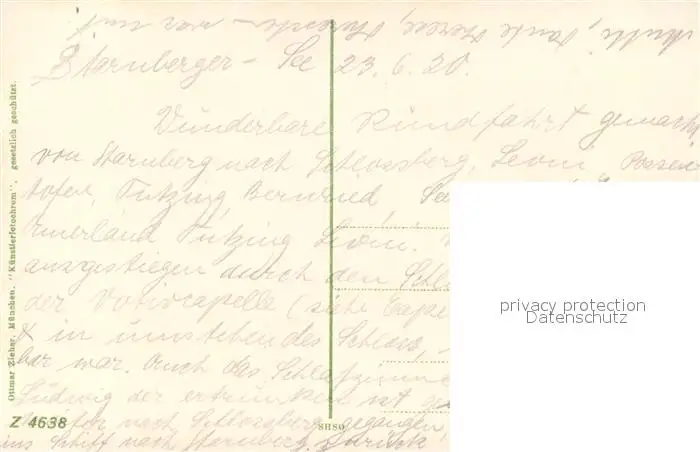 Mutti, Tante Therese, Therese – war mit
Starnberger – See 23. 6. 30.
Wunderbare Rundfahrt gemacht
von Starnberg nach Schlossberg, Leoni, Possen
hofen, Tutzing, Bernried, See
Tutzing Leoni.
ausgestiegen durch den Schlo
der Votivcapelle (siehe Cape
& in umstehendes Schloss,
bar war. Auch das Schlafzimme
Ludwig der ertrunken ist
nach Schlossberg gegangen,
ins Schiff nach Starnberg zurück
Ottmar Zieher, München. "Künstlerfotochrom", gesetzlich geschützt.
Z 4638
SHSO
privacy protection
Datenschutz